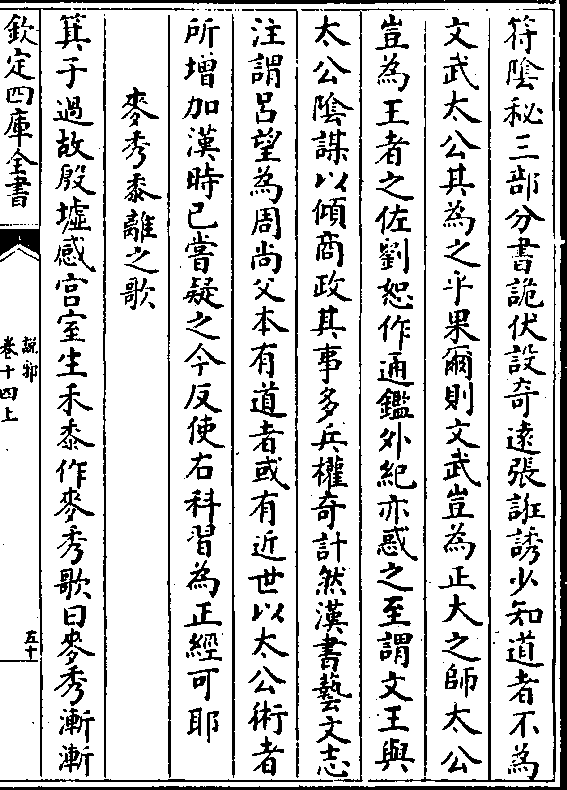 符陰秘三部分書詭伏設奇遠張誑誘少知道者不為
文武太公其為之乎果爾則文武豈為正大之師太公
豈為王者之佐劉恕作通鑑外紀亦惑之至謂文王與
太公陰謀以傾商政其事多兵權奇計然漢書藝文志
注謂呂望為周尚父本有道者或有近世以太公術者
所增加漢時已嘗疑之今反使右科習為正經可耶
麥秀黍離之歌
箕子過故殷墟感宫室生禾黍作麥秀歌曰麥秀漸漸
欽定四庫全書
說郛
卷十四上
五十